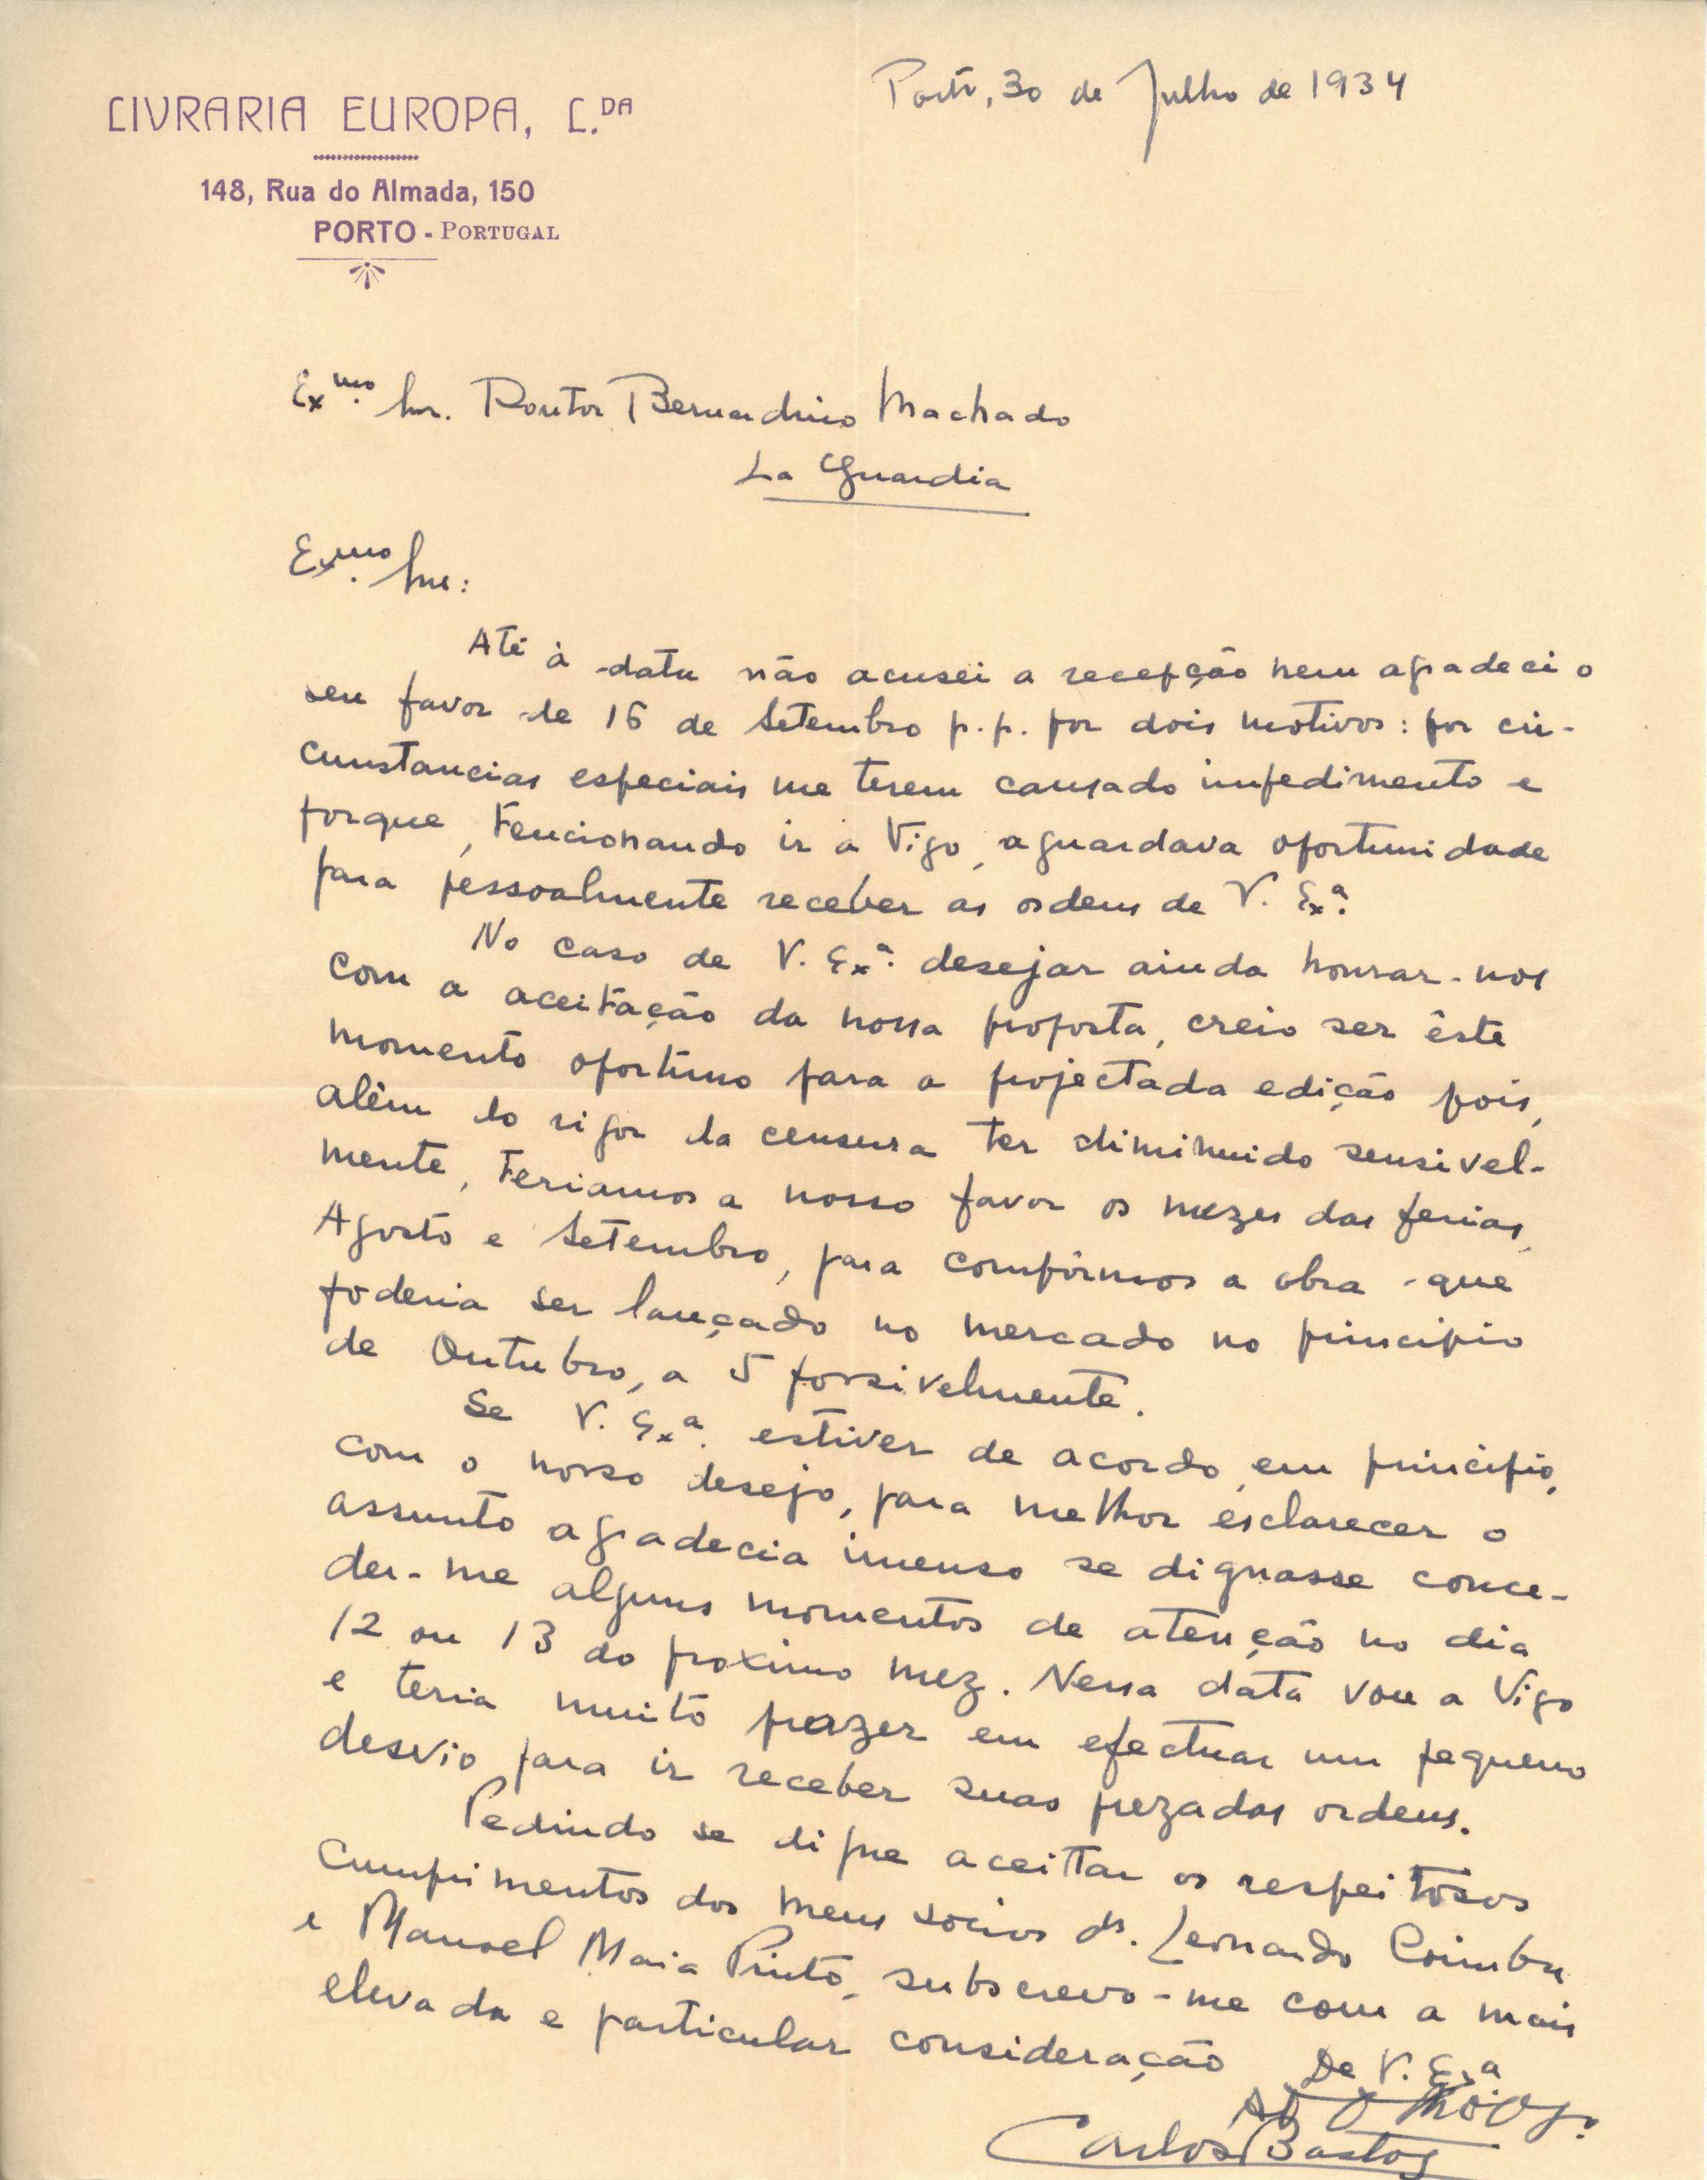 LIVRARIA EUROPA, L.DA
148, Rua do Almada, 150
PORTO - PORTUGAL
Porto, 30 de Julho de 1934
Exmo. Snr. Doutor Bernardino Machado
La Guardia
Exmo. Snr:
Até à data não acusei a recepção nem agradeci o
seu favor de 16 de Setembro p.p. por dois motivos: por cir-
cunstancias especiais me terem causado impedimento e
porque, tencionando ir a Vigo, aguardava oportunidade
para pessoalmente receber as ordens de V. Exa.
No caso de V. Exa. desejar ainda honrar-nos
com a aceitação da nossa proposta, creio ser êste
momento oportuno para a projectada edição pois,
além do rigor da censura ter diminuido sensivel-
mente, teriamos a nosso favor os mezes das ferias,
Agosto e Setembro, para compôrmos a obra que
poderia ser lançado no mercado no principio
de Outubro, a 5 possivelmente.
Se V. Exa. estiver de acordo, em principio,
com o nosso desejo, para melhor esclarecer o
assunto agradecia imenso se dignasse conce-
der-me alguns momentos de atenção no dia
12 ou 13 do proximo mez. Nessa data vou a Vigo
e teria muito prazer em efectuar um pequeno
desvio para ir receber suas prezadas ordens.
Pedindo se digne aceittar os respeitosos
cumprimentos dos meus socios dr. Leonardo Coimbra
e Manoel Maia Pinto, subscrevo-me com a mais
elevada e particular consideração
De V. Exa
Carlos Bastos